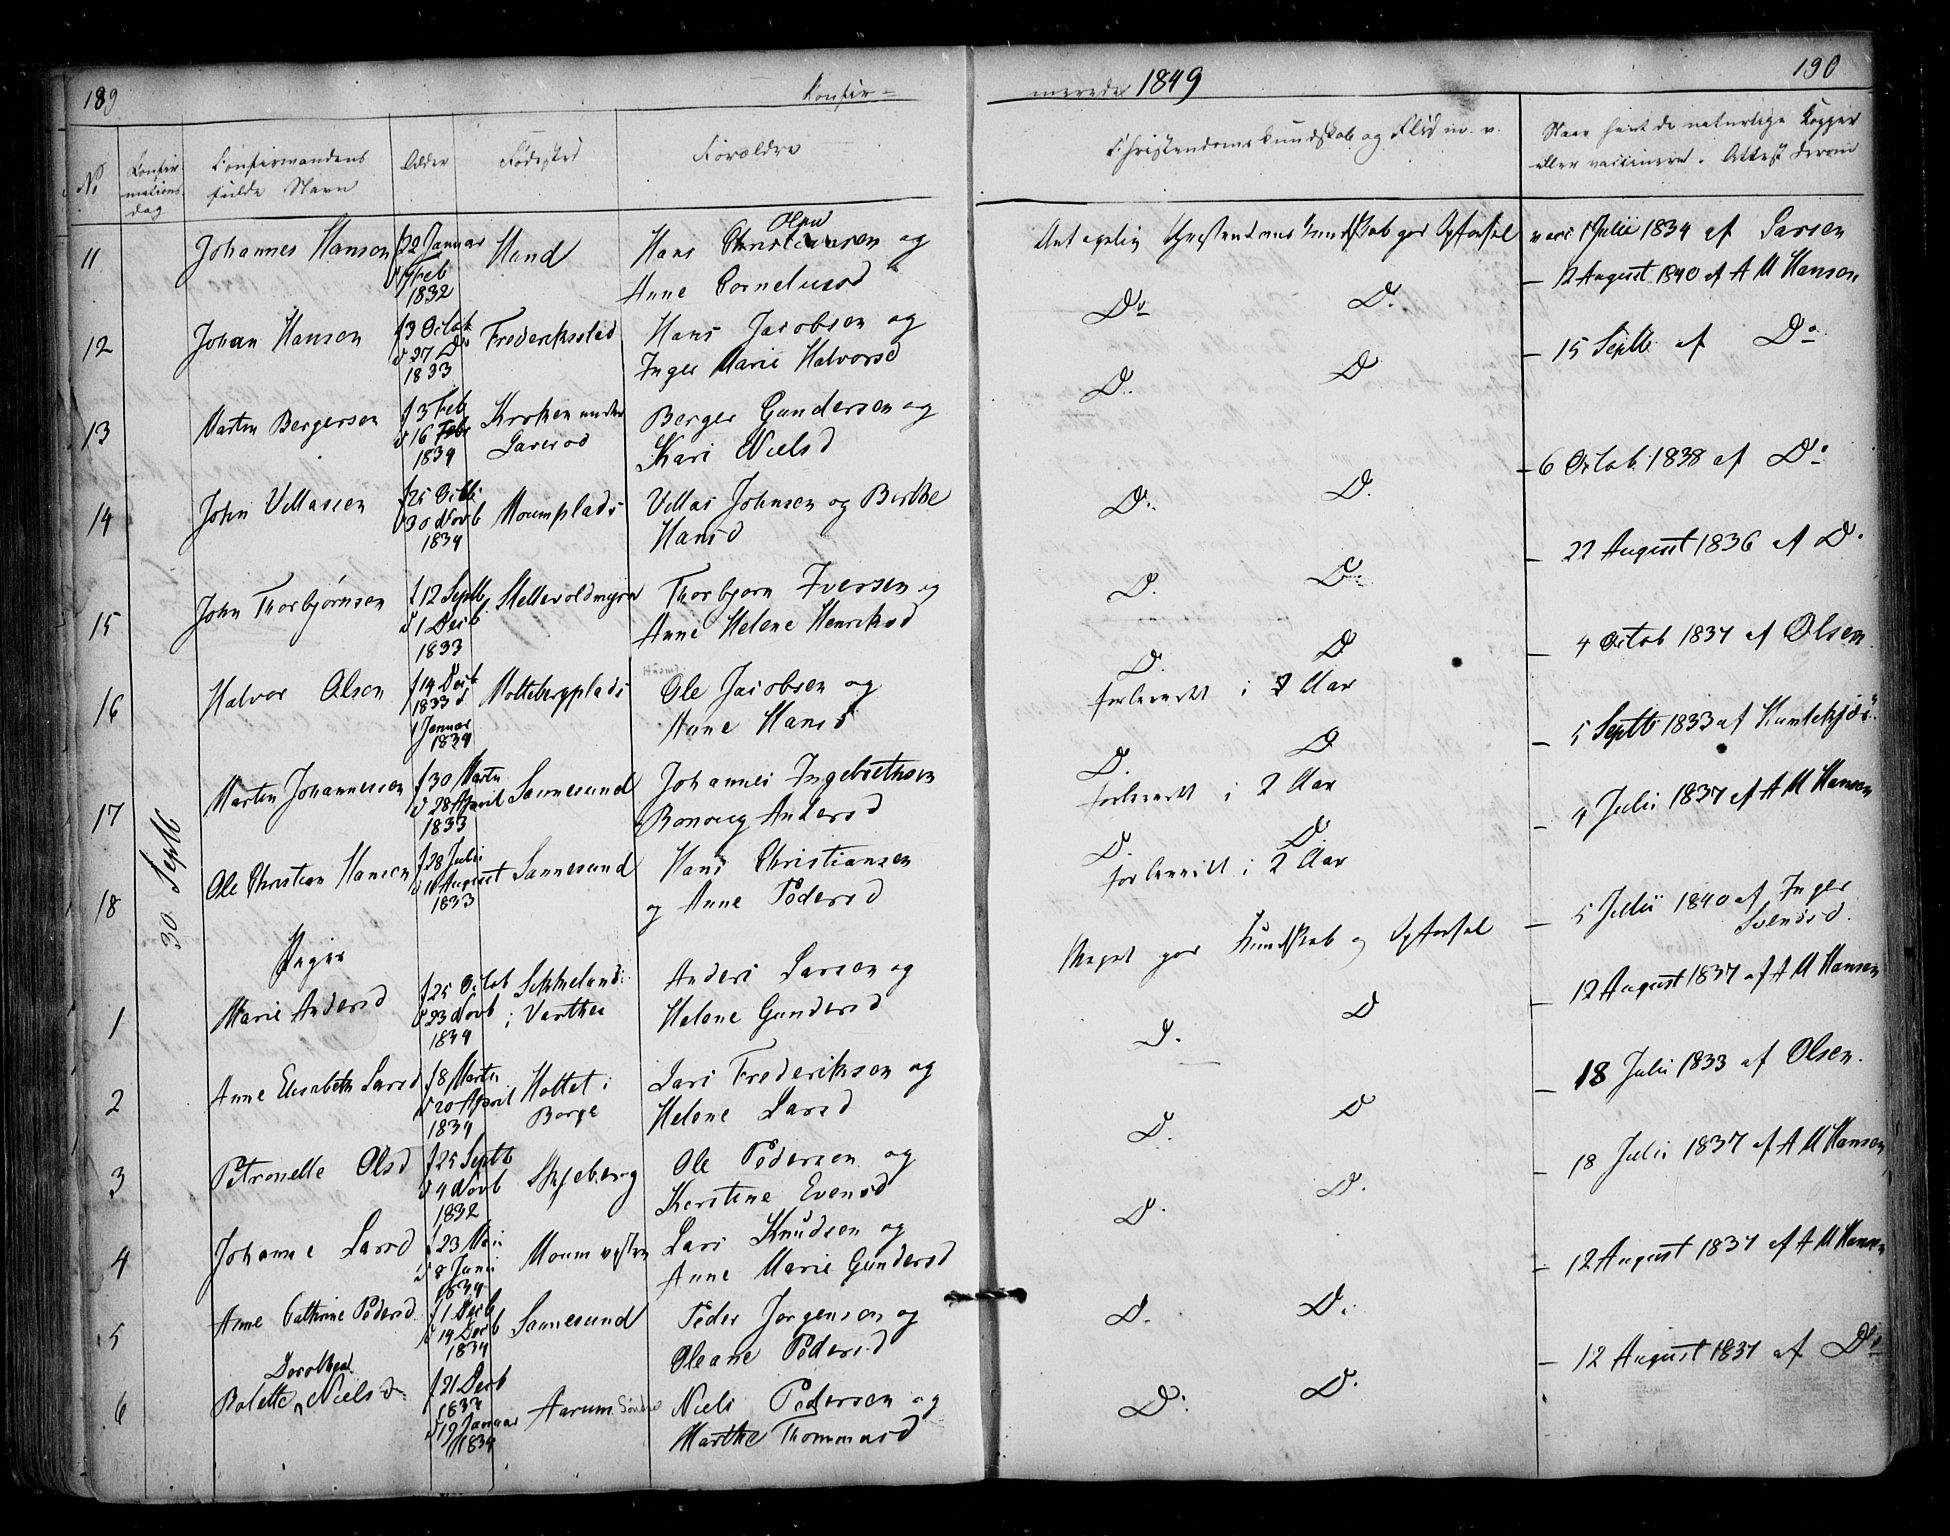 189
Konfir-
merede 1849
190
No
Konfir
mations
dag
Konfirmandens
fulde Navn
Alder
Fødested
Forældre
Christendomskundskab og Flid m. v.
Naar havt de naturlige Kopper
eller vaccineret. Attest derom
11
Johannes Hansen
f 22 Januar
Feb
1832
Hund
Olsen
Hans Christiansen og
Anne Cornelusd
Antagelig Christendoms Kundskab god Opførsel
vacc 1 Julii 1834 af Larsen
12
Johan Hansen
f 3 Octob
d 27 Do
1833
Frederiksstad
Hans Jacobsen og
Inger Marie Halvorsd
Do
Do
- 12 August 1840 af A M Hansen
13
Marten Bergersen
f 3 Feb
d 16 Febr
1834
Kroken under
Berger Gundersen og
Kari Nielsd
D.
D
- 15 Septb af Do
14
John Villassen
f 25
d 30 Novb
1834
Moumplads
Villas Johnsen og Birthe
Hansd
D.
D.
- 6 Octob 1838 af Do
15
John Thorbjørnsen
f 12 Septb
d 1 Decb
1833
Stellevoldmyra
Thorbjørn Iversen og
Anne Helene Henriksd
D.
D.
- 22 August 1836 af D.
16
Halvor Olsen
f 14 Decb
1833 d
1 Januar
1834
Holtebergplads
Ole Jacobsen og
Anne Hansd
D.
D
forberedt i 2 Aar
- 4 Octob 1837 af Olsen
17
Marten Johannessen
f 30 Marts
d 28 April
1833
Sannesund
Johannes Ingebrethsen
Ronnoug Andersd
D.
D
forberedt i 2 Aar
- 5 Septb 1833 af
18
30 Septb
Ole Christian Hansen
f 28 Julii
d 18 August
1833
Sannesund
Hans Christiansen
og Anne Pedersd
D.
D.
forberedt i 2 Aar
- 4 Julii 1837 af A M Hansen
Piger
1
Marie Andersd
f 25 Octob
d 23 Novb
1834
i Varteig
Anders Larsen og
Helene Gundersd
Meget god Kundskab og Opførsel
- 5 Julii 1840 af Inger
Svendsd.
2
Anne Elisabeth Larsd
f 8 Marts
d 20 April
1834
Holtet i
Borge
Lars Frederiksen og
Helene Larsd
D.
D
- 12 August 1837 af A M Hansen
3
Petronelle Olsd
f 25 Septb
d 4 Novb
1832
Skjeberg
Ole Pedersen og
Kerstine Evensd
D.
D
- 18 Julii 1833 af Olsen.
4
Johanne Larsd
f 23 Mai
d 8 Junii
1834
Moum vestre
Lars Knudsen og
Anne Marie Gundersd
D.
D.
- 18 Julii 1837 af A M Hansen
5
Anne Cathrine Pedersd
f 1 Decb
d 14 Decb
1834
Sannesund
Peder Jørgensen og
Oleane Pedersd
D.
D.
- 12 August 1837 af A M Hansen
6
Dorothea
Bolette Nielsd
f 21 Decb
1833
d 12 Januar
1834
Aarum Søndre
Niels Pedersen og
Marthe Thommasd
D.
D.
- 12 August 1837 af Do